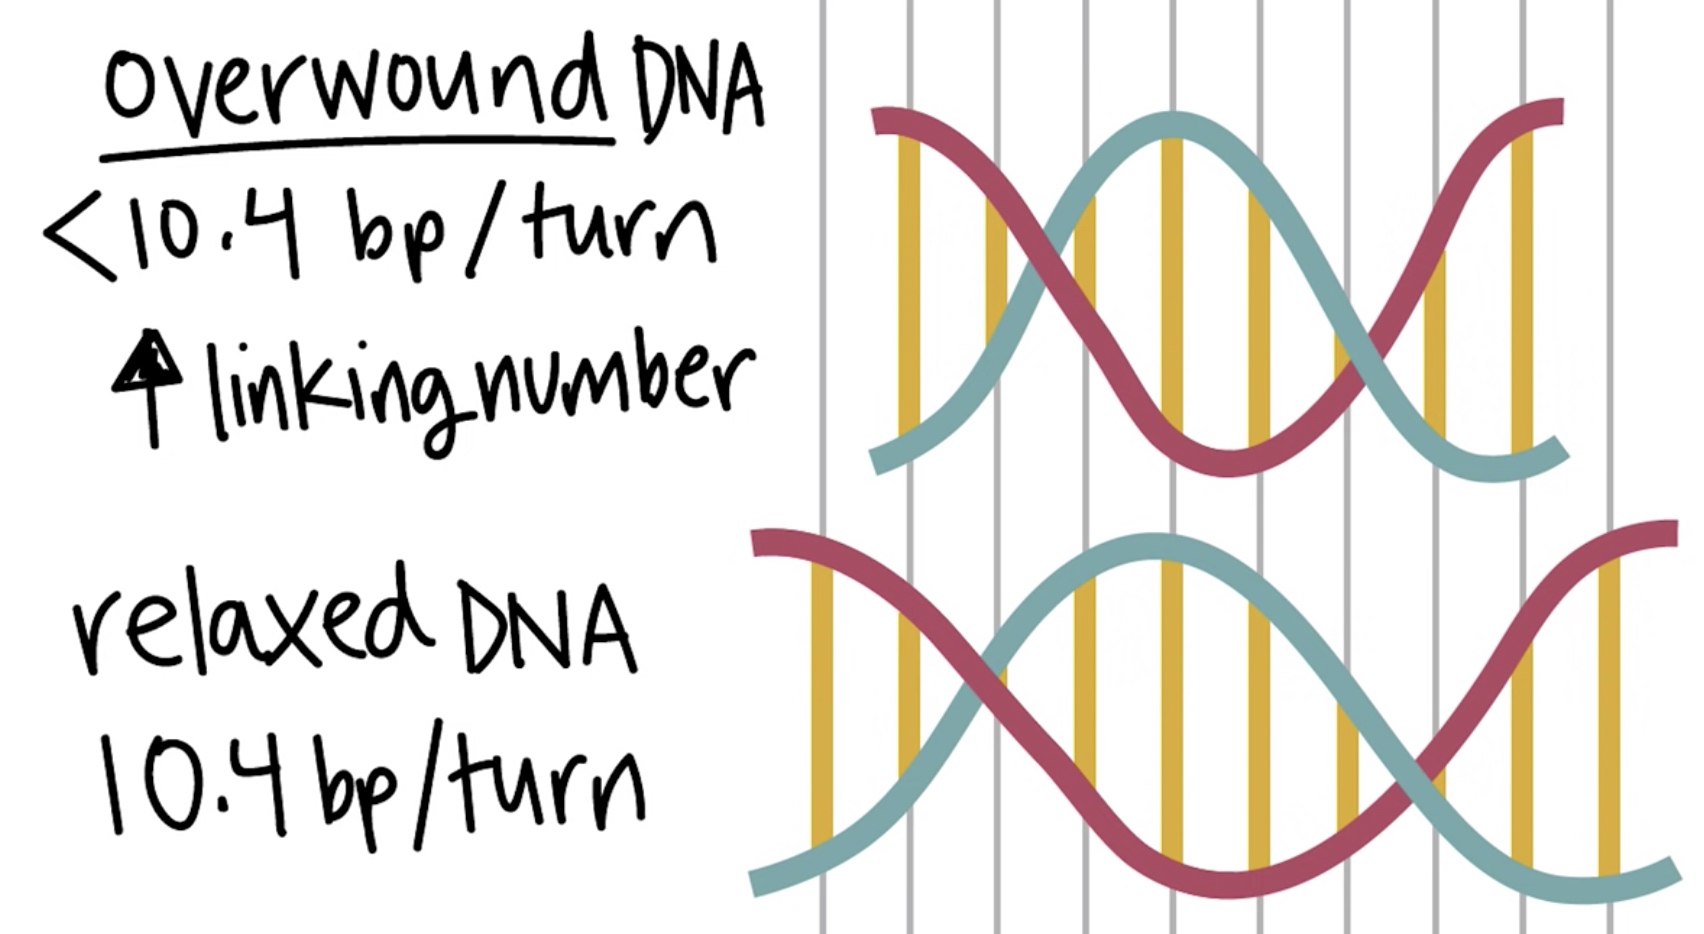 overwound DNA
<10.4 bp/turn
↑ linking number
relaxed DNA
10.4 bp/turn